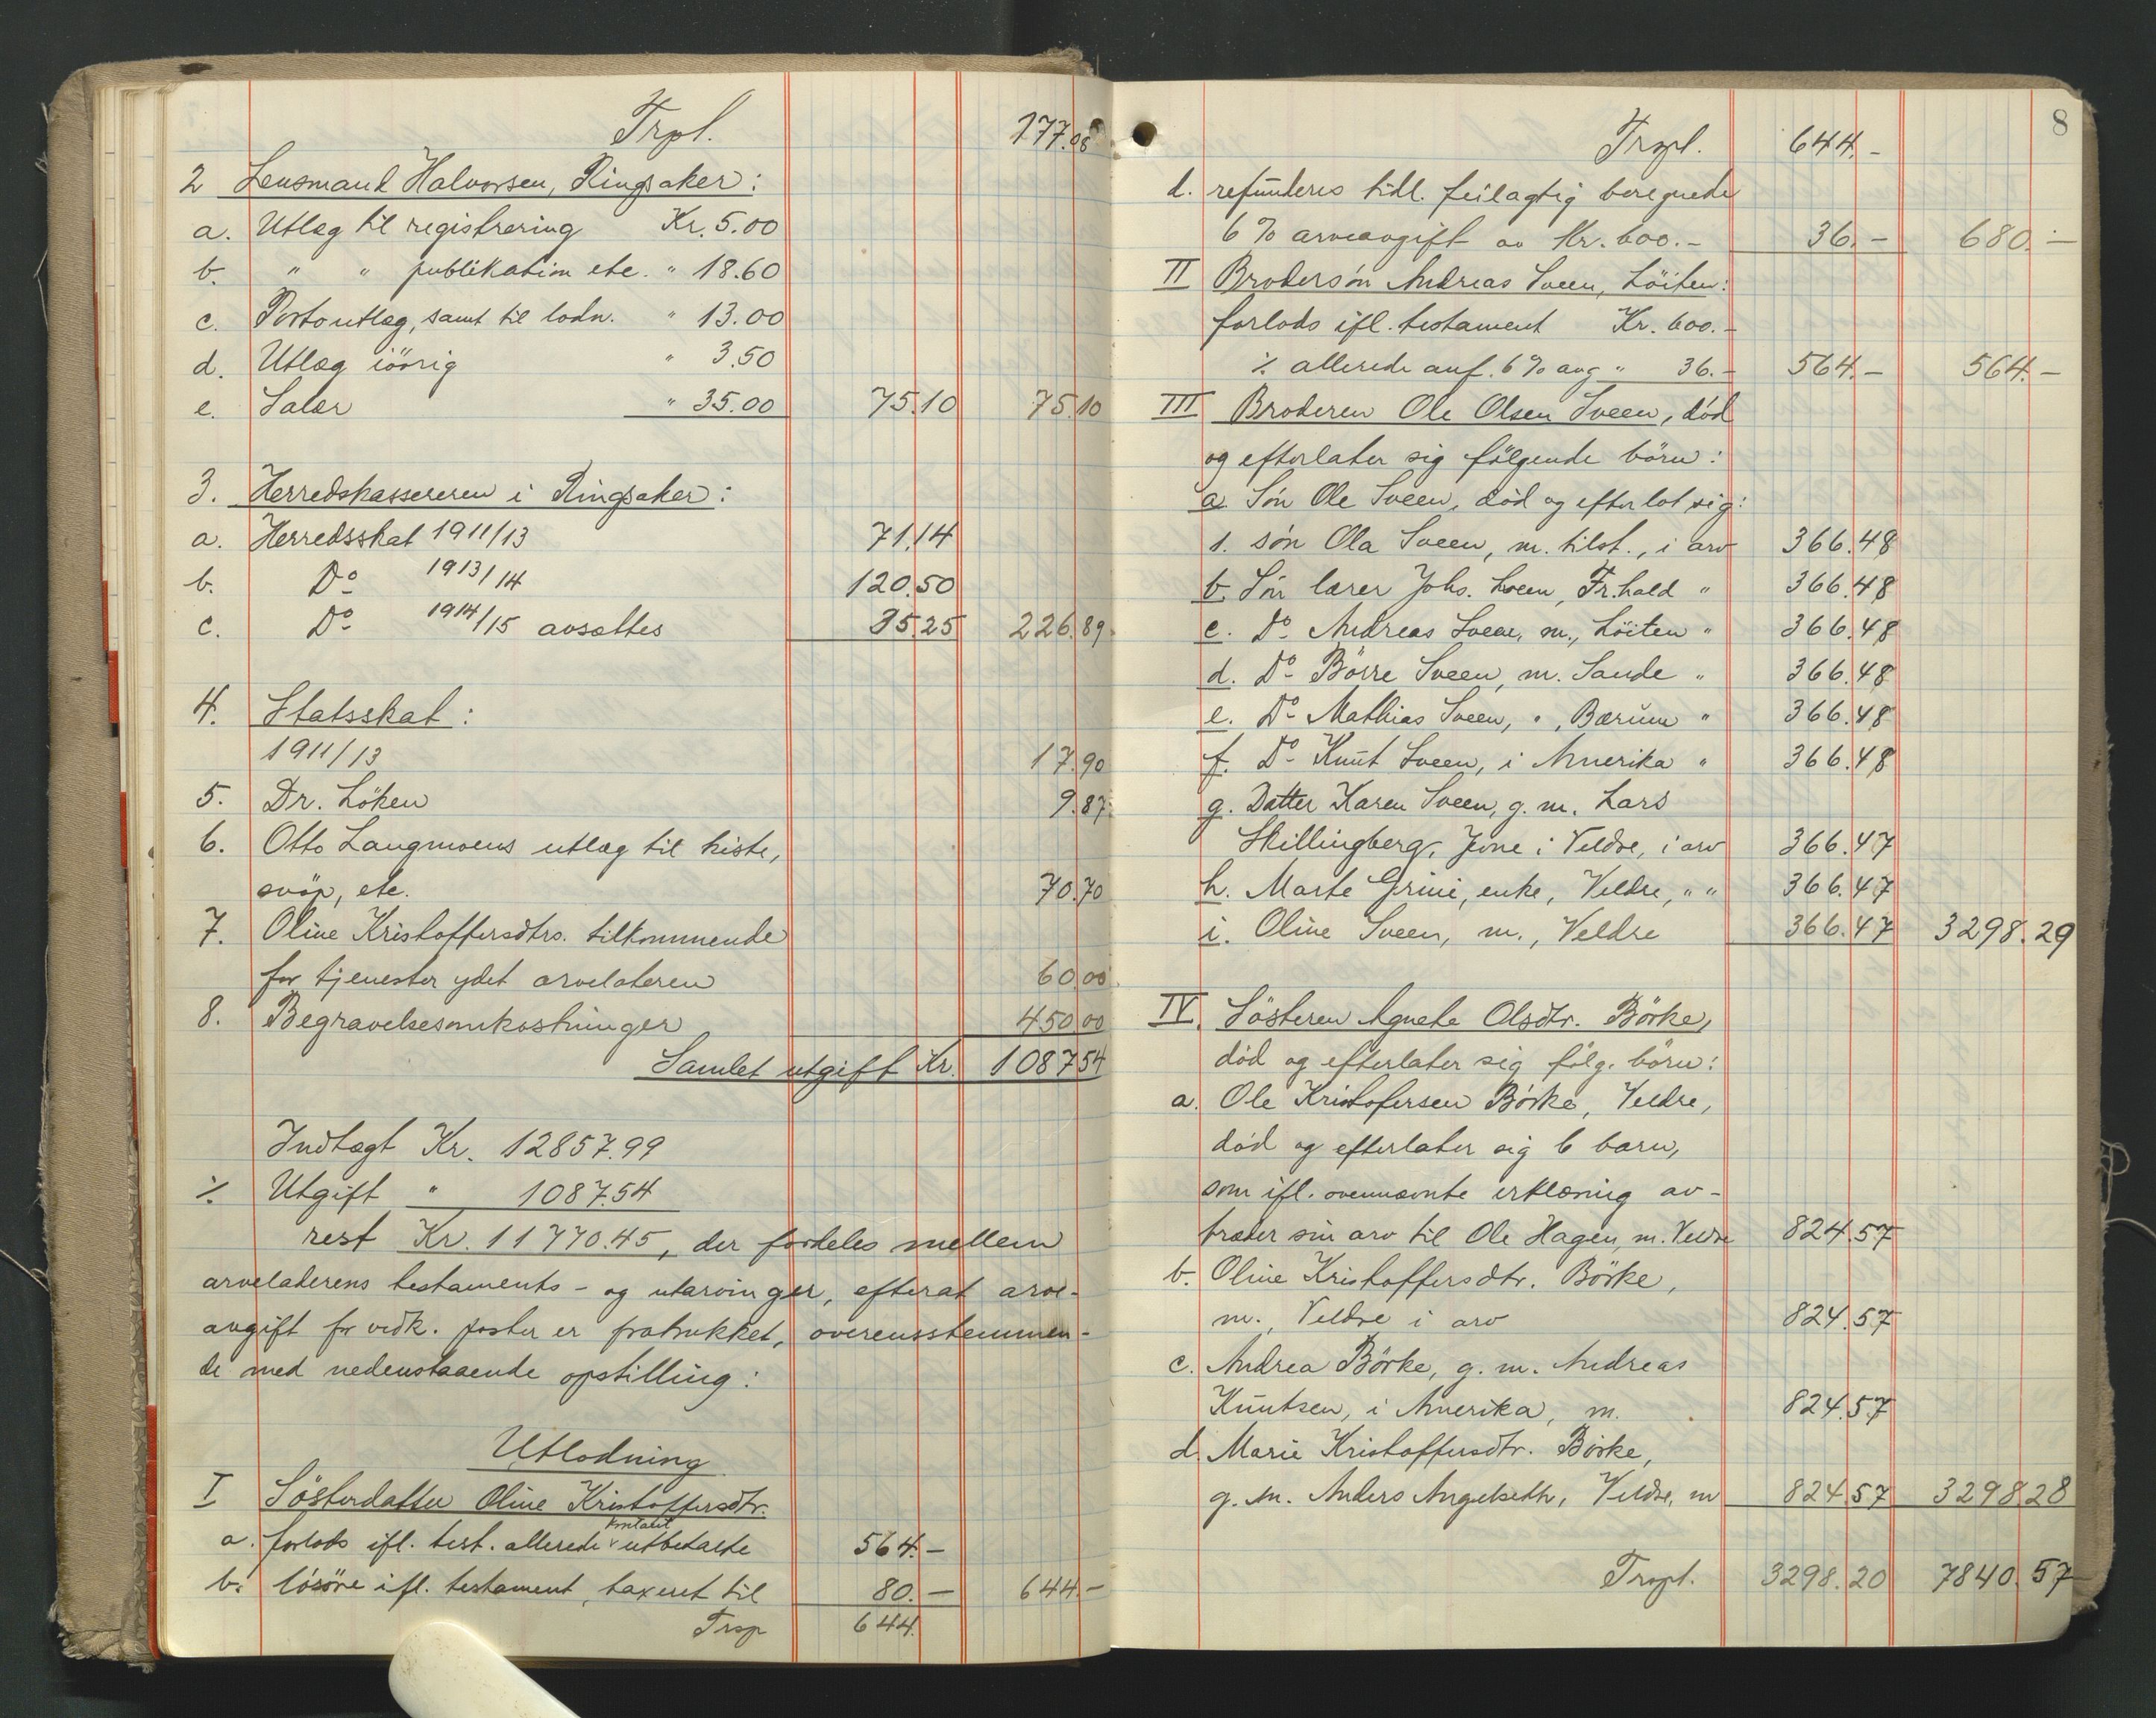 Trpl. 177.08
2 Lensmand Halvorsen, Ringsaker:
a. Utlæg til registrering Kr. 5.00
b. " " publikation etc. " 18.60
c. Portoutlæg, samt til lodn. " 13.00
d. Utlæg iövrig " 3.50
e. Salær " 35.00 75.10 75.10
3. Herredskassereren i Ringsaker:
a. Herredsskat 1911/13 71.14
b. Do 1913/14 120.50
c. Do 1914/15 avsættes 35.25 226.89
4. Statsskat:
1911/13 17.90
5. Dr. Löken 9.87
6. Otto Langmoens utlæg til kiste,
svöp, etc. 70.70
7. Oline Kristoffersdtrs. tilkommende
for tjenester ydet arvelateren 60.00
8. Begravelsesomkostninger 450.00
Samlet utgift Kr. 1087.54
Indtægt Kr. 12857.99
% Utgift " 1087.54
rest Kr. 11770.45, der fordeles mellem
arvelaterens testaments- og utarvinger, efterat arve-
avgift for vedk. poster er fratrukket, overensstemmen-
de med nedenstaaende opstilling:
Utlodning
I Sösterdatter Oline Kristoffersdtr.
a. forlods ifl. test. allerede kontant utbetalte 564.-
b. lösöre ifl. testament, taxeret til 80.- 644.-
Trsp 644.
8
Trspl. 644.-
d. refunderes tidl. feilagtig beregnede
6% arveavgift av Kr. 600.- 36.- 680.-
II Brodersön Andreas Sveen, Löiten:
forlods ifl. testament Kr. 600.-
% allerede anf. 6% avg " 36.- 564.- 564.-
III Broderen Ole Olsen Sveen, död
og efterlater sig fölgende börn:
a. Sön Ole Sveen, död og efterlot sig:
1. sön Ola Sveen, m. tilst., i arv 366.48
b. Sön lærer Johs. Sveen, Fr.hald " 366.48
c. Do Andreas Sveen, m., Löiten " 366.48
d. Do Börre Sveen, m. Sande " 366.48
e. Do Mathias Sveen, ", Bærum " 366.48
f. Do Knut Sveen, i Amerika " 366.48
g. Datter Karen Sveen, g. m. Lars
Skillingberg, Jevne i Veldre, i arv 366.47
h. Marte Grini, enke, Veldre, " " 366.47
i. Oline Sveen, m., Veldre 366.47 3298.29
IV. Sösteren Agnete Olsdtr. Börke,
död og efterlater sig fölg. börn:
a. Ole Kristofersen Börke, Veldre,
död og efterlater sig 6 barn,
som ifl. ovennævnte erklæring av-
træder sin arv til Ole Hagen, m. Veldre 824.57
b. Oline Kristoffersdtr. Börke,
m., Veldre i arv 824.57
c. Andrea Börke, g. m. Andreas
Knutsen, i Amerika, m. 824.57
d. Marie Kristoffersdtr. Börke,
g. m. Anders Angelseth, Veldre, m 824.57 3298.28
Trspl. 3298.20 7840.57